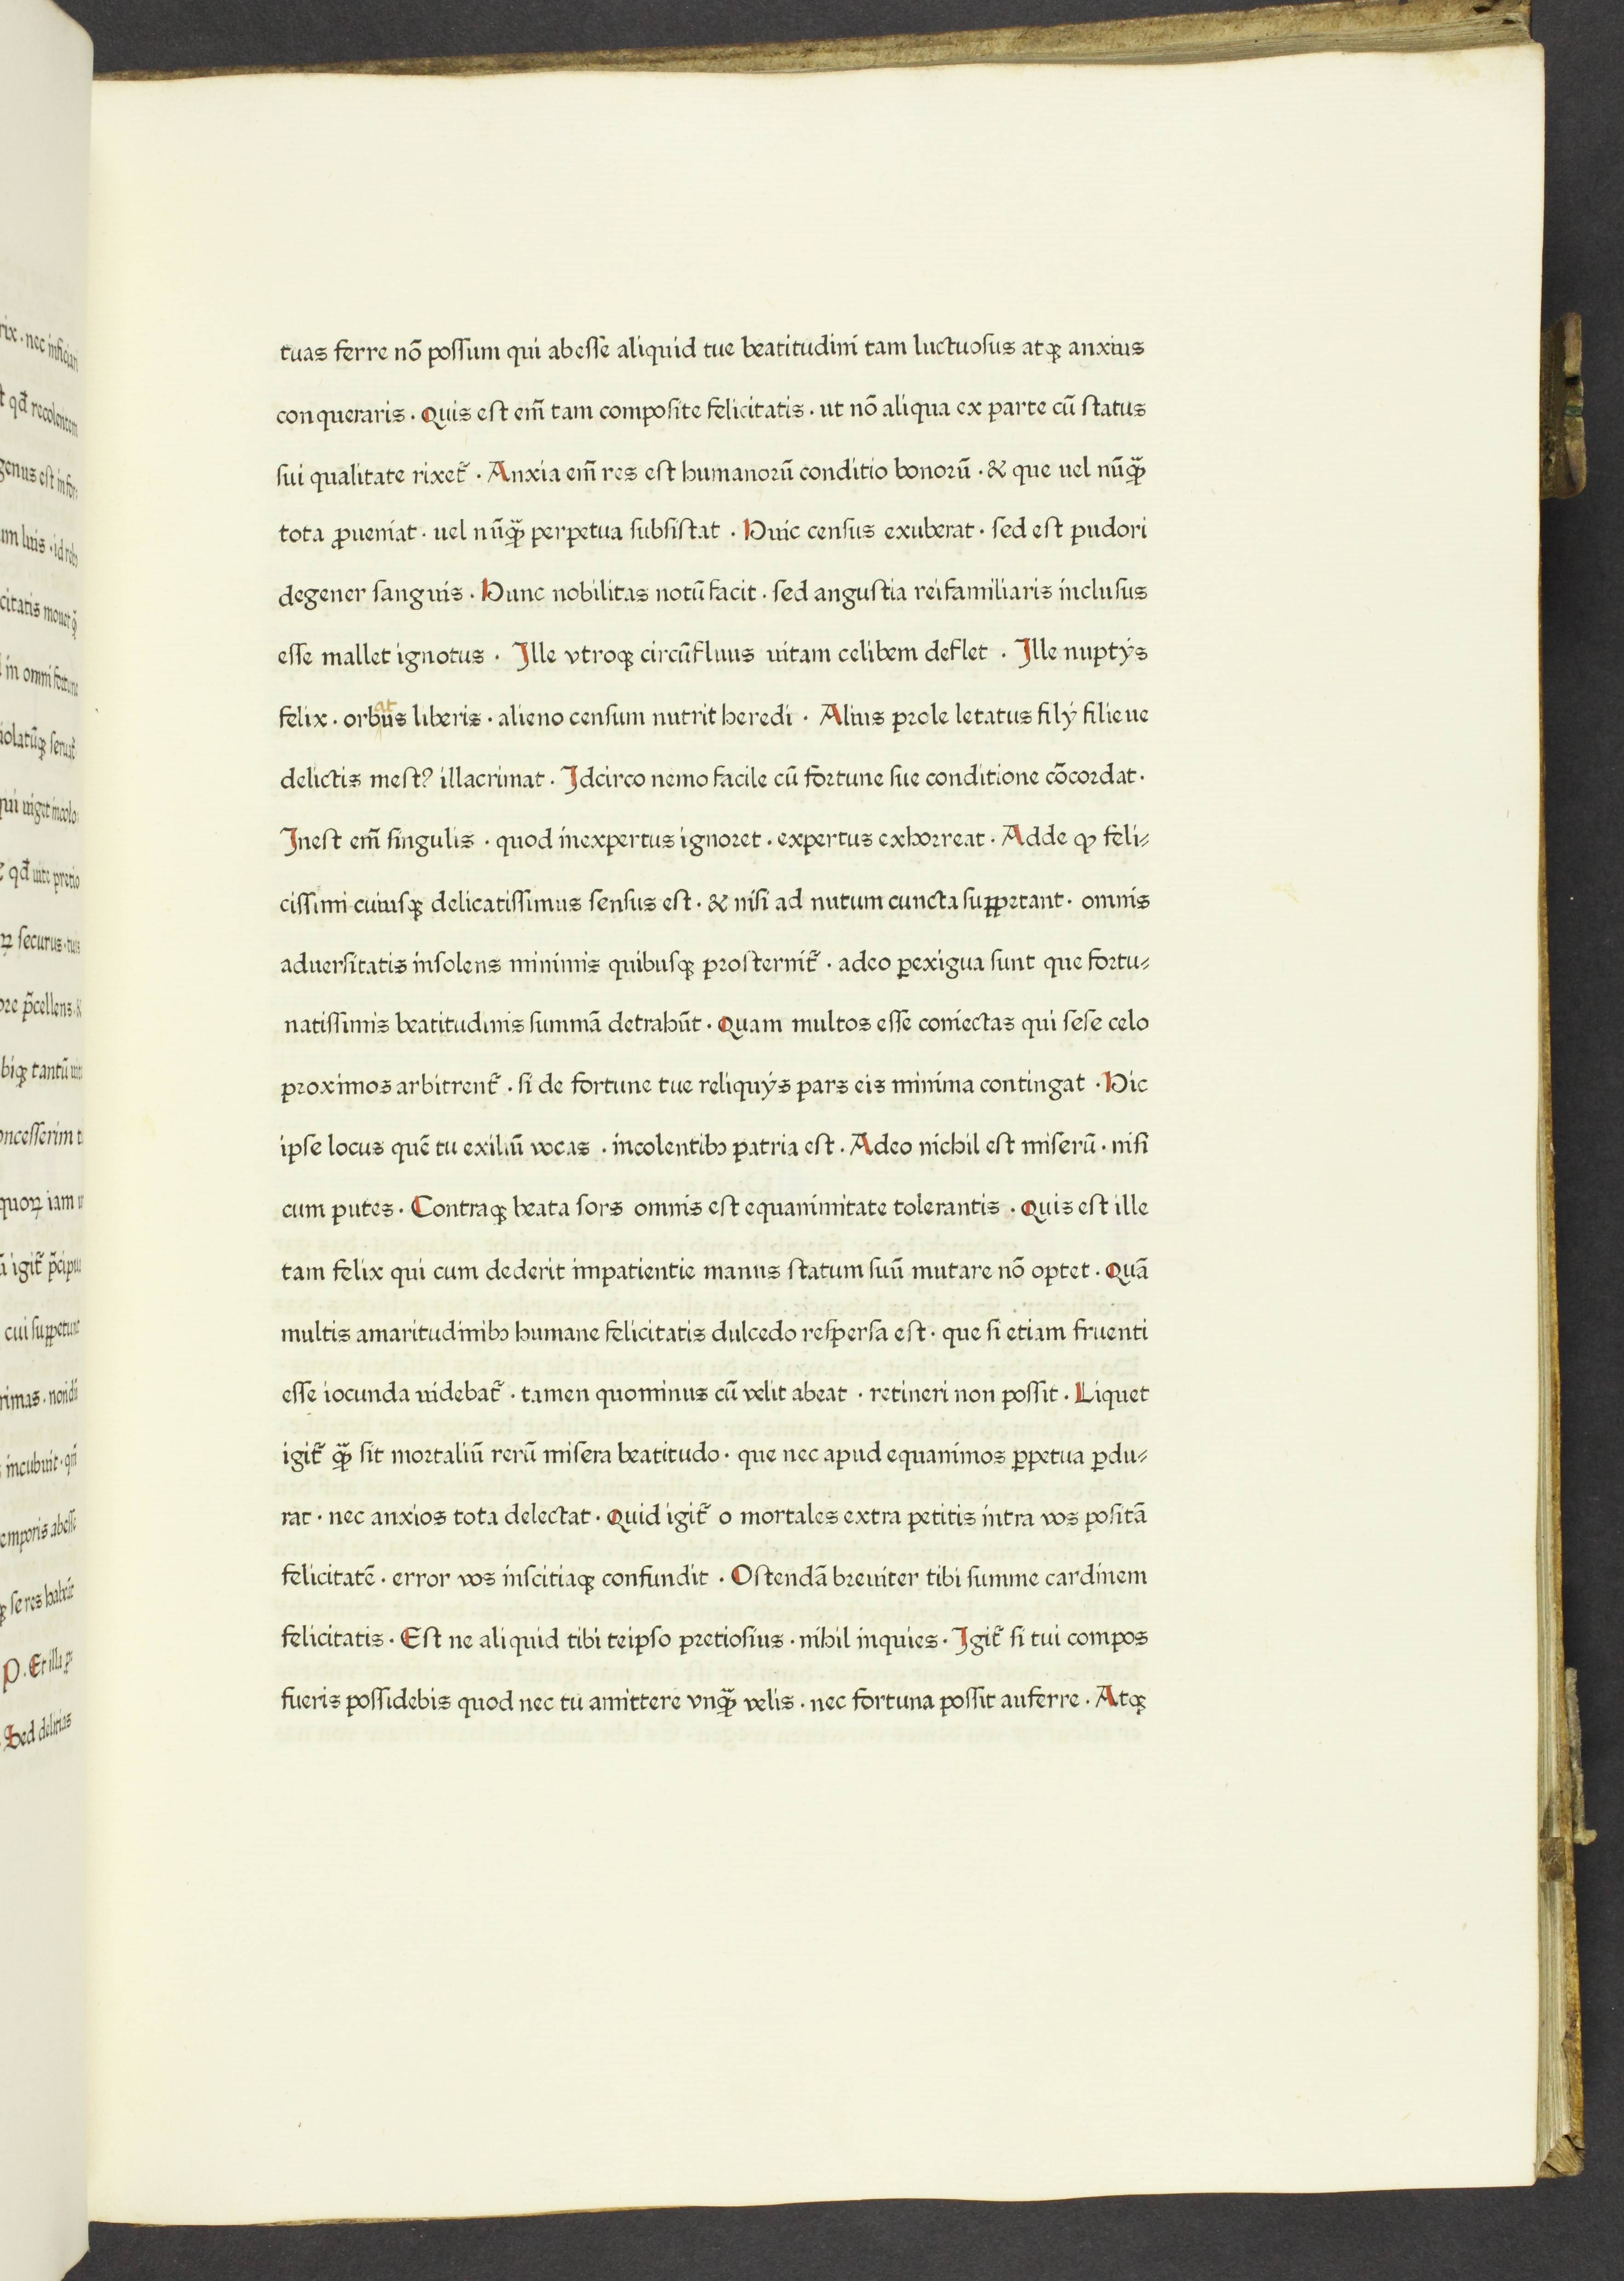 tuas ferre nō poſſum qui abeſſe aliquid tue beatitudini tam luctuoſus atqꝫ anxius
conqueraris · Quis eſt em̄ tam compoſite felicitatis · ut nō aliqua ex parte cū ſtatus
ſui qualitate rixet᷑ · Anxia em̄ res eſt humanorū conditio bonorū · & que uel nūqꝫ̄
tota ꝓueniat · uel nūqꝫ̄ perpetua ſubſiſtat · Huic census exuberat · ſed eſt pudori
degener ſanguis · Hunc nobilitas notū facit · ſed anguſtia rei familiaris incluſus
eſſe mallet ignotus · Ille vtroqꝫ circūfluus uitam celibem deflet · Ille nuptÿs
felix · orbus liberis · alieno censum nutrit heredi · Alius prole letatus filÿ filieue
at
delictis meſtꝰ illacrimat · Idcirco nemo facile cū fortune ſue conditione cōcordat ·
Ineſt em̄ ſingulis · quod inexpertus ignoret · expertus exhorreat · Adde ꝙ feli⸗
ciſſimi cuiuſqꝫ delicatiſſimus ſenſus eſt · & niſi ad nutum cuncta ſuꝑꝑetant · omnis
aduerſitatis inſolens minimis quibuſqꝫ proſternit᷑ · adeo ꝑexigua ſunt que fortu⸗
natiſſimis beatitudinis ſummā detrahūt · Quam multos eſſe coniectas qui ſeſe celo
proximos arbitrent᷑ · ſi de fortune tue reliquÿs pars eis minima contingat · Hic
ipſe locus quē tu exiliū vocas · incolentibꝰ patria eſt · Adeo nichil eſt miſerū · niſi
cum putes · Contraqꝫ beata ſors omnis eſt equanimitate tolerantis · Quis eſt ille
tam felix qui cum dederit impatientie manus ſtatum ſuū mutare nō optet · Quā
multis amaritudinibꝰ humane felicitatis dulcedo reſperſa eſt · que ſi etiam fruenti
eſſe iocunda uidebat᷑ · tamen quominus cū velit abeat · retineri non poſſit · Liquet
igit᷑ qꝫ̄ ſit mortaliū rerū miſera beatitudo · que nec apud equanimos ꝑpetua ꝑdu⸗
rat · nec anxios tota delectat · Quid igit᷑ o mortales extra petitis intra vos poſitā
felicitatē · error vos inſcitiaqꝫ confundit · Oſtendā breuiter tibi ſumme cardinem
felicitatis · Eſt ne aliquid tibi teipſo pretioſius · nihil inquies · Igit᷑ ſi tui compos
fueris poſſidebis quod nec tu amittere vnqꝫ̄ velis · nec fortuna poſſit auferre · Atqꝫ